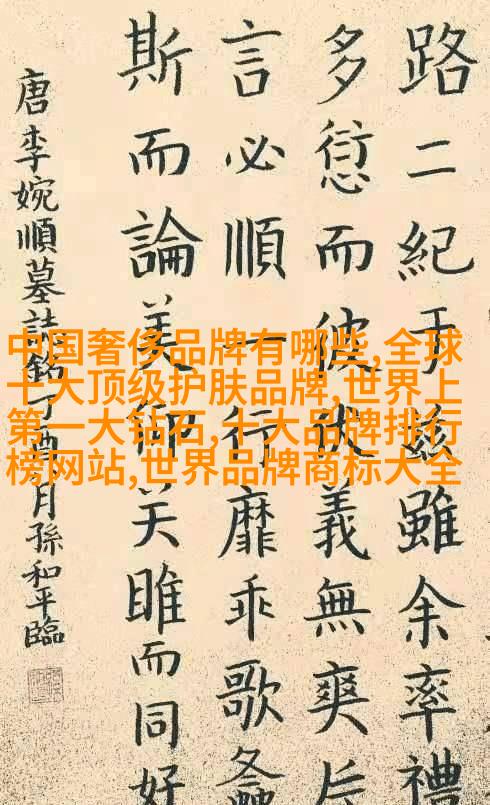 路二紀于茲雖余率禮
多愆而彼從義無爽片
言必順一行靡乖歌螽
斯而論美仰关雎而同好
唐李婉順墓誌銘丁酉月孫和平臨
中国奢侈品牌有哪些,全球
十大顶级护肤品牌,世界上
第一大钻石,十大品牌排行
榜网站,世界品牌商标大全